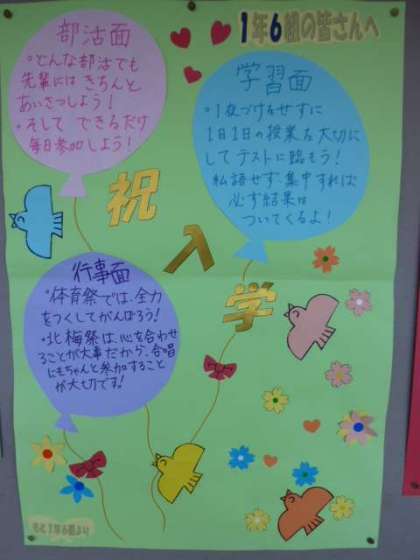 1年6組の皆さんへ
部活面
・どんな部活でも
先輩にはきちんと
あいさつしよう!
・そして できるだけ
毎日参加しよう!
学習面
・1夜づけをせずに
1日1日の授業を大切に
してテストに臨もう!
私語せず、集中すれば
必ず結果は
ついてくるよ!
祝
入
学
行事面
・体育祭では、全力
をつくしてがんばろう!
・北梅祭は、心を合わせ
ることが大事だから、合唱
にもちゃんと参加すること
が大切です!
もと1年6組より